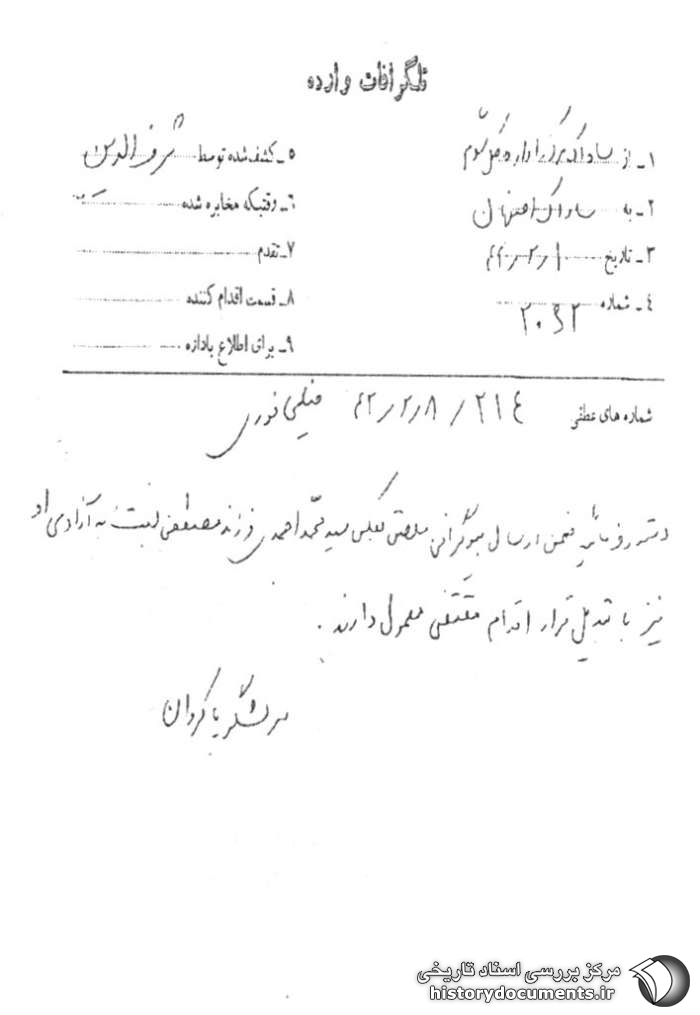 تلگرافات وارده
۱ـ از ساواک مرکز اداره کل سوم
۲ـ به ساواک اصفهان
۳ـ تاریخ
۴ـ شماره
۵ـ کشف شده توسط شرف الدین
۶ـ وقتیکه مخابره شده
۷ـ تقدم
۸ـ قسمت اقدام کننده
۹ـ برای اطلاع باداره
شماره های عطفی ۲۱۴ / ۴۲/۲/۸
دستور فرمائید ضمن ارسال بیوگرافی ملصق بعکس سید محمد احمدی فرزند مصطفی نسبت به آزادی او
نیز با تبدیل قرار اقدام مقتضی معمول دارند .
سرلشگر پاکروان
مرکز بررسی اسناد تاریخی
historydocuments.ir